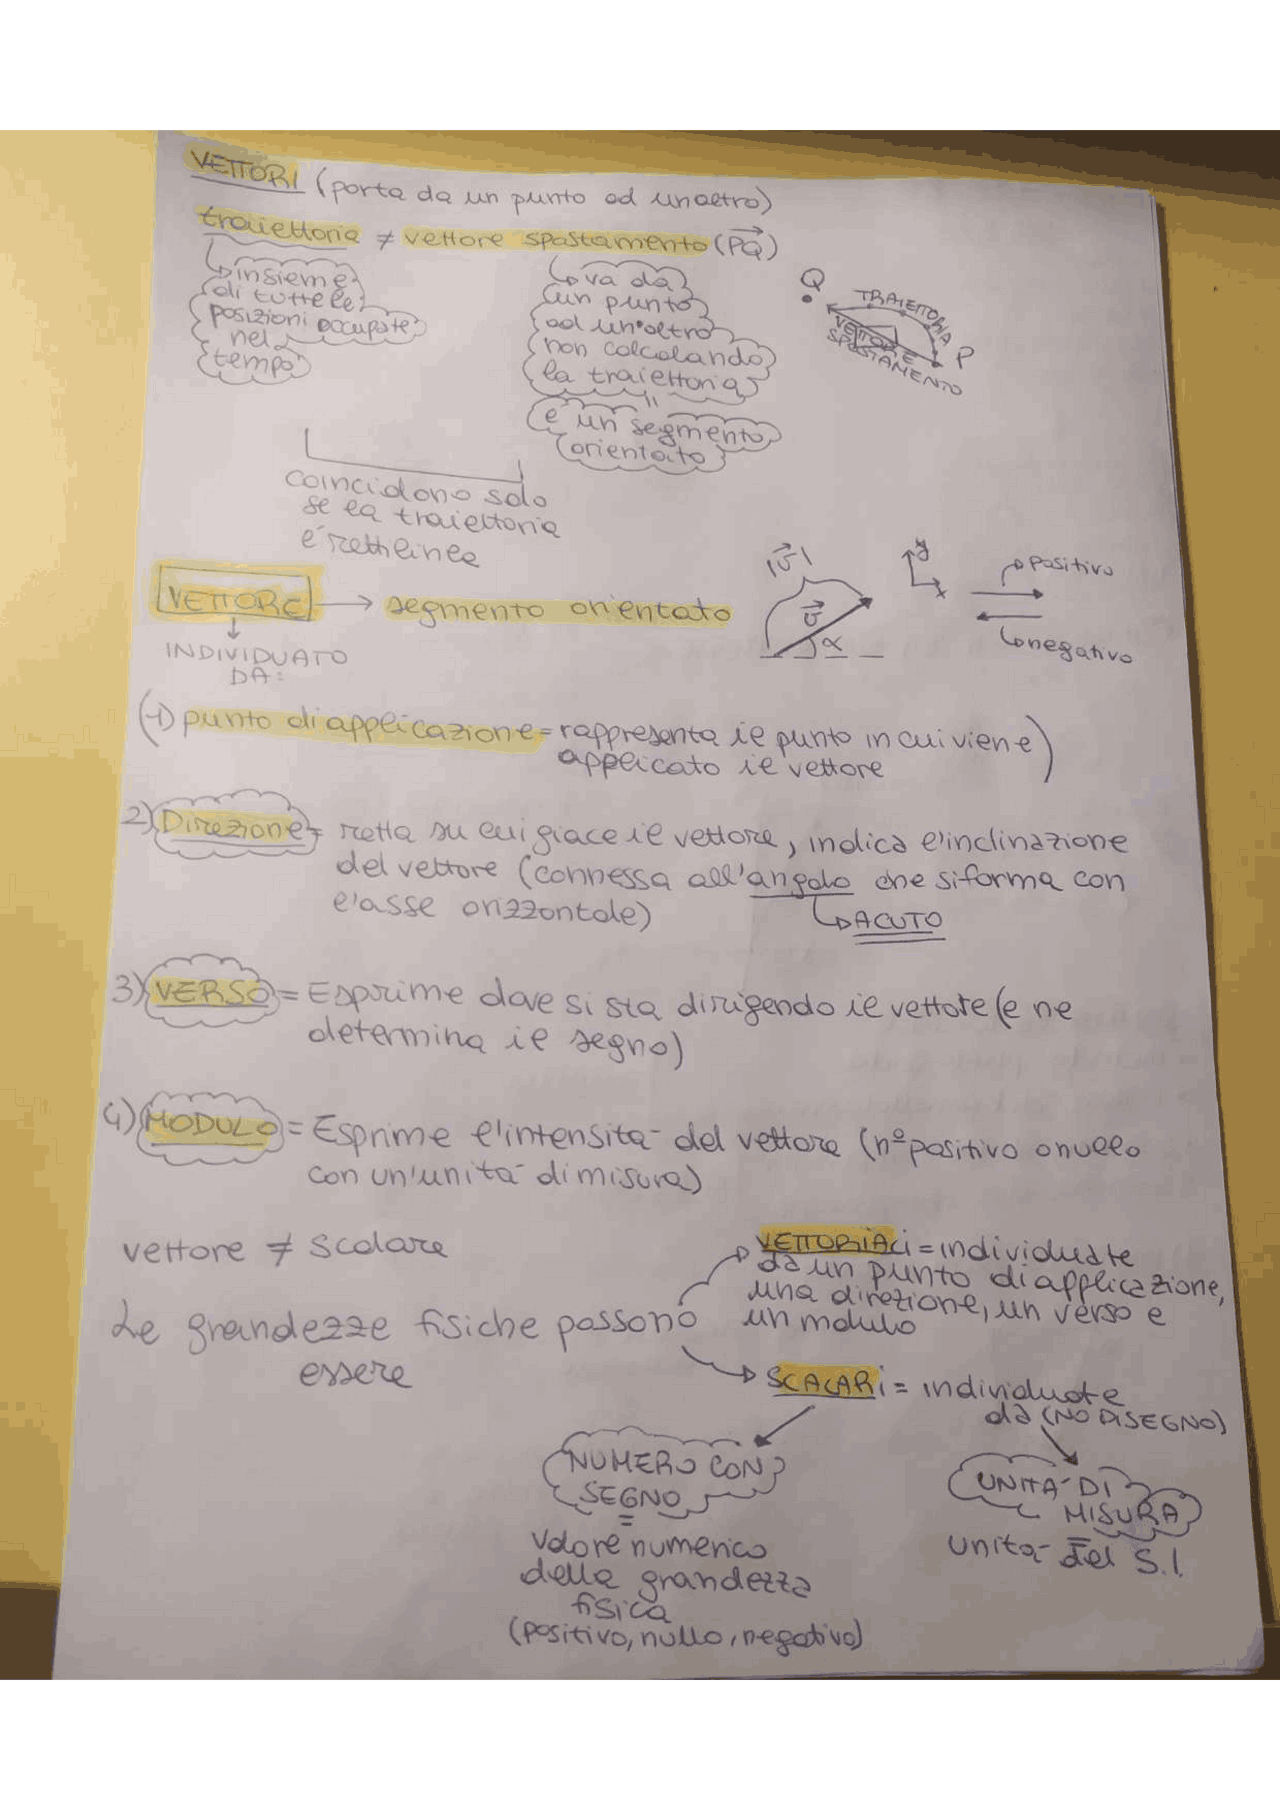 VETTORI (porta da un punto ad un altro)
traiettoria ≠ vettore spostamento (PQ)
insieme
di tutte le
posizioni occupate
nel
tempo
va da
un punto
ad un altro
non calcolando
la traiettoria
=
è un segmento
orientato
Q
TRAIETTORIA
VETTORE
SPOSTAMENTO
P
coincidono solo
se la traiettoria
è rettilinea
VETTORE → segmento orientato
INDIVIDUATO
DA:
|v|
v
α
y
x
positivo
negativo
(1) punto di applicazione = rappresenta il punto in cui viene)
applicato il vettore
2) Direzione = retta su cui giace il vettore, indica l'inclinazione
del vettore (connessa all'angolo che si forma con
l'asse orizzontale)
ACUTO
3) VERSO = Esprime dove si sta dirigendo il vettore (e ne
determina il segno)
4) MODULO = Esprime l'intensità del vettore (nº positivo o nullo
con un'unità di misura)
vettore ≠ scalare
Le grandezze fisiche possono
essere
VETTORIALi = individuate
da un punto di applicazione,
una direzione, un verso e
un modulo
SCALARi = individuate
da (NO DISEGNO)
NUMERO CON
SEGNO
=
valore numerico
della grandezza
fisica
(positivo, nullo, negativo)
UNITÀ DI
MISURA
=
unità del S.I.